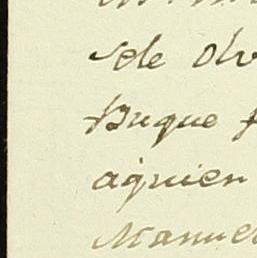 se le olv
Buque
aquien
Manuel